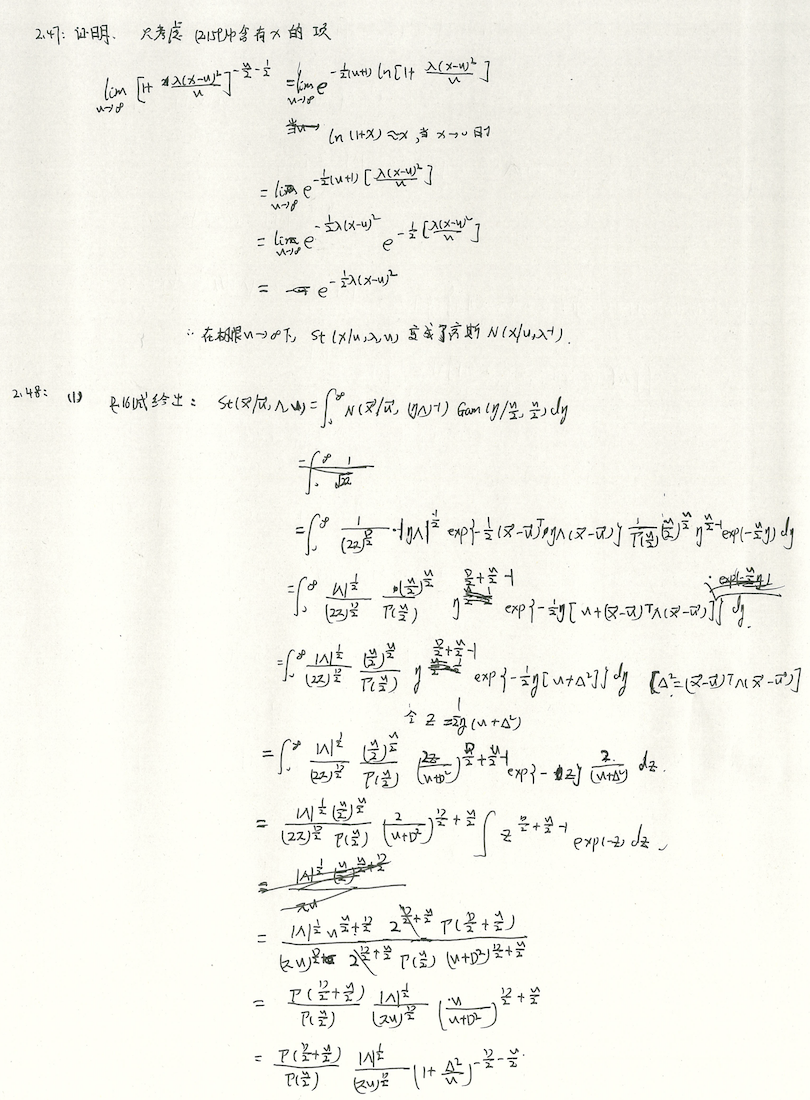 2.47: 证明. 只考虑 (2.159)中含有 x 的 项
lim_{ν→∞} [1+ λ(x-u)²/ν]^{-ν/2-1/2} = lim_{ν→∞} e^{-½(ν+1) ln[1+ λ(x-u)²/ν]}
ln(1+x)≈x, 当 x→0 时
= lim_{ν→∞} e^{-½(ν+1)[λ(x-u)²/ν]}
= lim_{ν→∞} e^{-½λ(x-u)²} e^{-½[λ(x-u)²/ν]}
= e^{-½λ(x-u)²}
∴ 在极限ν→∞下, St(x/u,λ,ν) 变成了高斯 N(x/u,λ⁻¹).
2.48: (1) 给出: St(x⃗/u⃗,Λ,ν) = ∫₀^∞ N(x⃗/u⃗, (ηΛ)⁻¹) Gam(η/ν/2, ν/2) dη
= ∫₀^∞ 1/(2π)^{D/2} · |ηΛ|^{1/2} exp{-½(x⃗-u⃗)ᵀηΛ(x⃗-u⃗)} 1/Γ(ν/2) (ν/2)^{ν/2} η^{ν/2-1} exp(-ν/2 η) dη
= ∫₀^∞ |Λ|^{1/2}/(2π)^{D/2} (ν/2)^{ν/2}/Γ(ν/2) η^{D/2+ν/2-1} exp{-½η[ν+(x⃗-u⃗)ᵀΛ(x⃗-u⃗)]} dη.
= ∫₀^∞ |Λ|^{1/2}/(2π)^{D/2} (ν/2)^{ν/2}/Γ(ν/2) η^{D/2+ν/2-1} exp{-½η[ν+Δ²]} dη [Δ²=(x⃗-u⃗)ᵀΛ(x⃗-u⃗)]
令 z = ½η(ν+Δ²)
= ∫₀^∞ |Λ|^{1/2}/(2π)^{D/2} (ν/2)^{ν/2}/Γ(ν/2) (2z/(ν+Δ²))^{D/2+ν/2-1} exp{-z} 2/(ν+Δ²) dz.
= |Λ|^{1/2}(ν/2)^{ν/2}/((2π)^{D/2} Γ(ν/2)) (2/(ν+Δ²))^{D/2+ν/2} ∫ z^{D/2+ν/2-1} exp(-z) dz
= |Λ|^{1/2} ν^{ν/2+D/2} 2^{D/2+ν/2} Γ(D/2+ν/2) / ((πν)^{D/2} 2^{D/2+ν/2} Γ(ν/2) (ν+Δ²)^{D/2+ν/2})
= Γ(D/2+ν/2)/Γ(ν/2) |Λ|^{1/2}/(πν)^{D/2} (ν/(ν+Δ²))^{D/2+ν/2}
= Γ(D/2+ν/2)/Γ(ν/2) |Λ|^{1/2}/(πν)^{D/2} (1+Δ²/ν)^{-D/2-ν/2}.